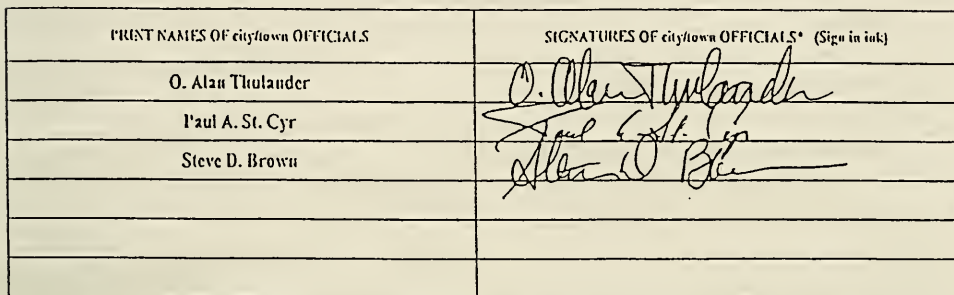 PRINT NAMES OF city/town OFFICIALS SIGNATURES OF city/town OFFICIALS* (Sign in ink)
O. Alan Thulander O. Alan Thulander
Paul A. St. Cyr Paul A. St. Cyr
Steve D. Brown Steven D Brown